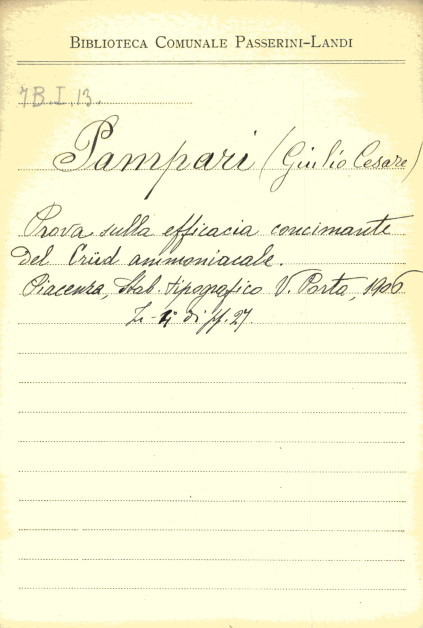 BIBLIOTECA COMUNALE PASSERINI-LANDI
7B.I.13.
Pampari (Giulio Cesare)
Prova sulla efficacia concimante
del Crüd ammoniacale.
Piacenza, Stab. tipografico V. Porta, 1906
di pp. 27.